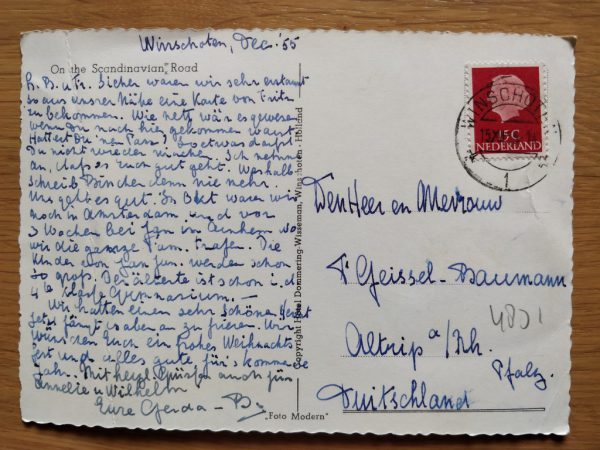 Winschoten, Dec. '55
On the „Scandinavian" Road
B. B. u Fr. Sicher waren wir sehr erstaunt
so aus unsrer Nähe eine Karte von Fritz
zu bekommen. Wie nett wär es gewesen
wenn Du noch hier gekommen warst.
Hattest Du 'ne Pass? So etwas darfst
Du nicht wieder machen. Ich nehme
an, dass es Euch gut geht. Weshalb
schreibt Binchen denn nie mehr.
Uns geht es gut. In Okt waren wir
noch in Amsterdam und vor
3 Wochen bei Jan in Arnhem wo
wir die ganze Fam. trafen. Die
Kinder von Jan jun. werden schon
so groß. Der älteste ist schon i. d.
4te Klasse Gymnasium. —
Wir hatten einen sehr schönen Herbst
jetzt fängt es aber an zu frieren. Wir
wünschen Euch ein frohes Weihnachts
fest und alles gute für's kommende
Jahr. Mit herzl. Grüßen auch für
Annelie u Wilhelm
Eure Gerda -
Copyright Hotel Dommering-Wisseman, Winschoten - Holland
„Foto Modern"
15C
NEDERLAND
WINSCHOTEN
1
Den Heer en Mevrouw
Geissel-Baumann
4801
Altrip a/Rh.
Pfalz.
Duitschland